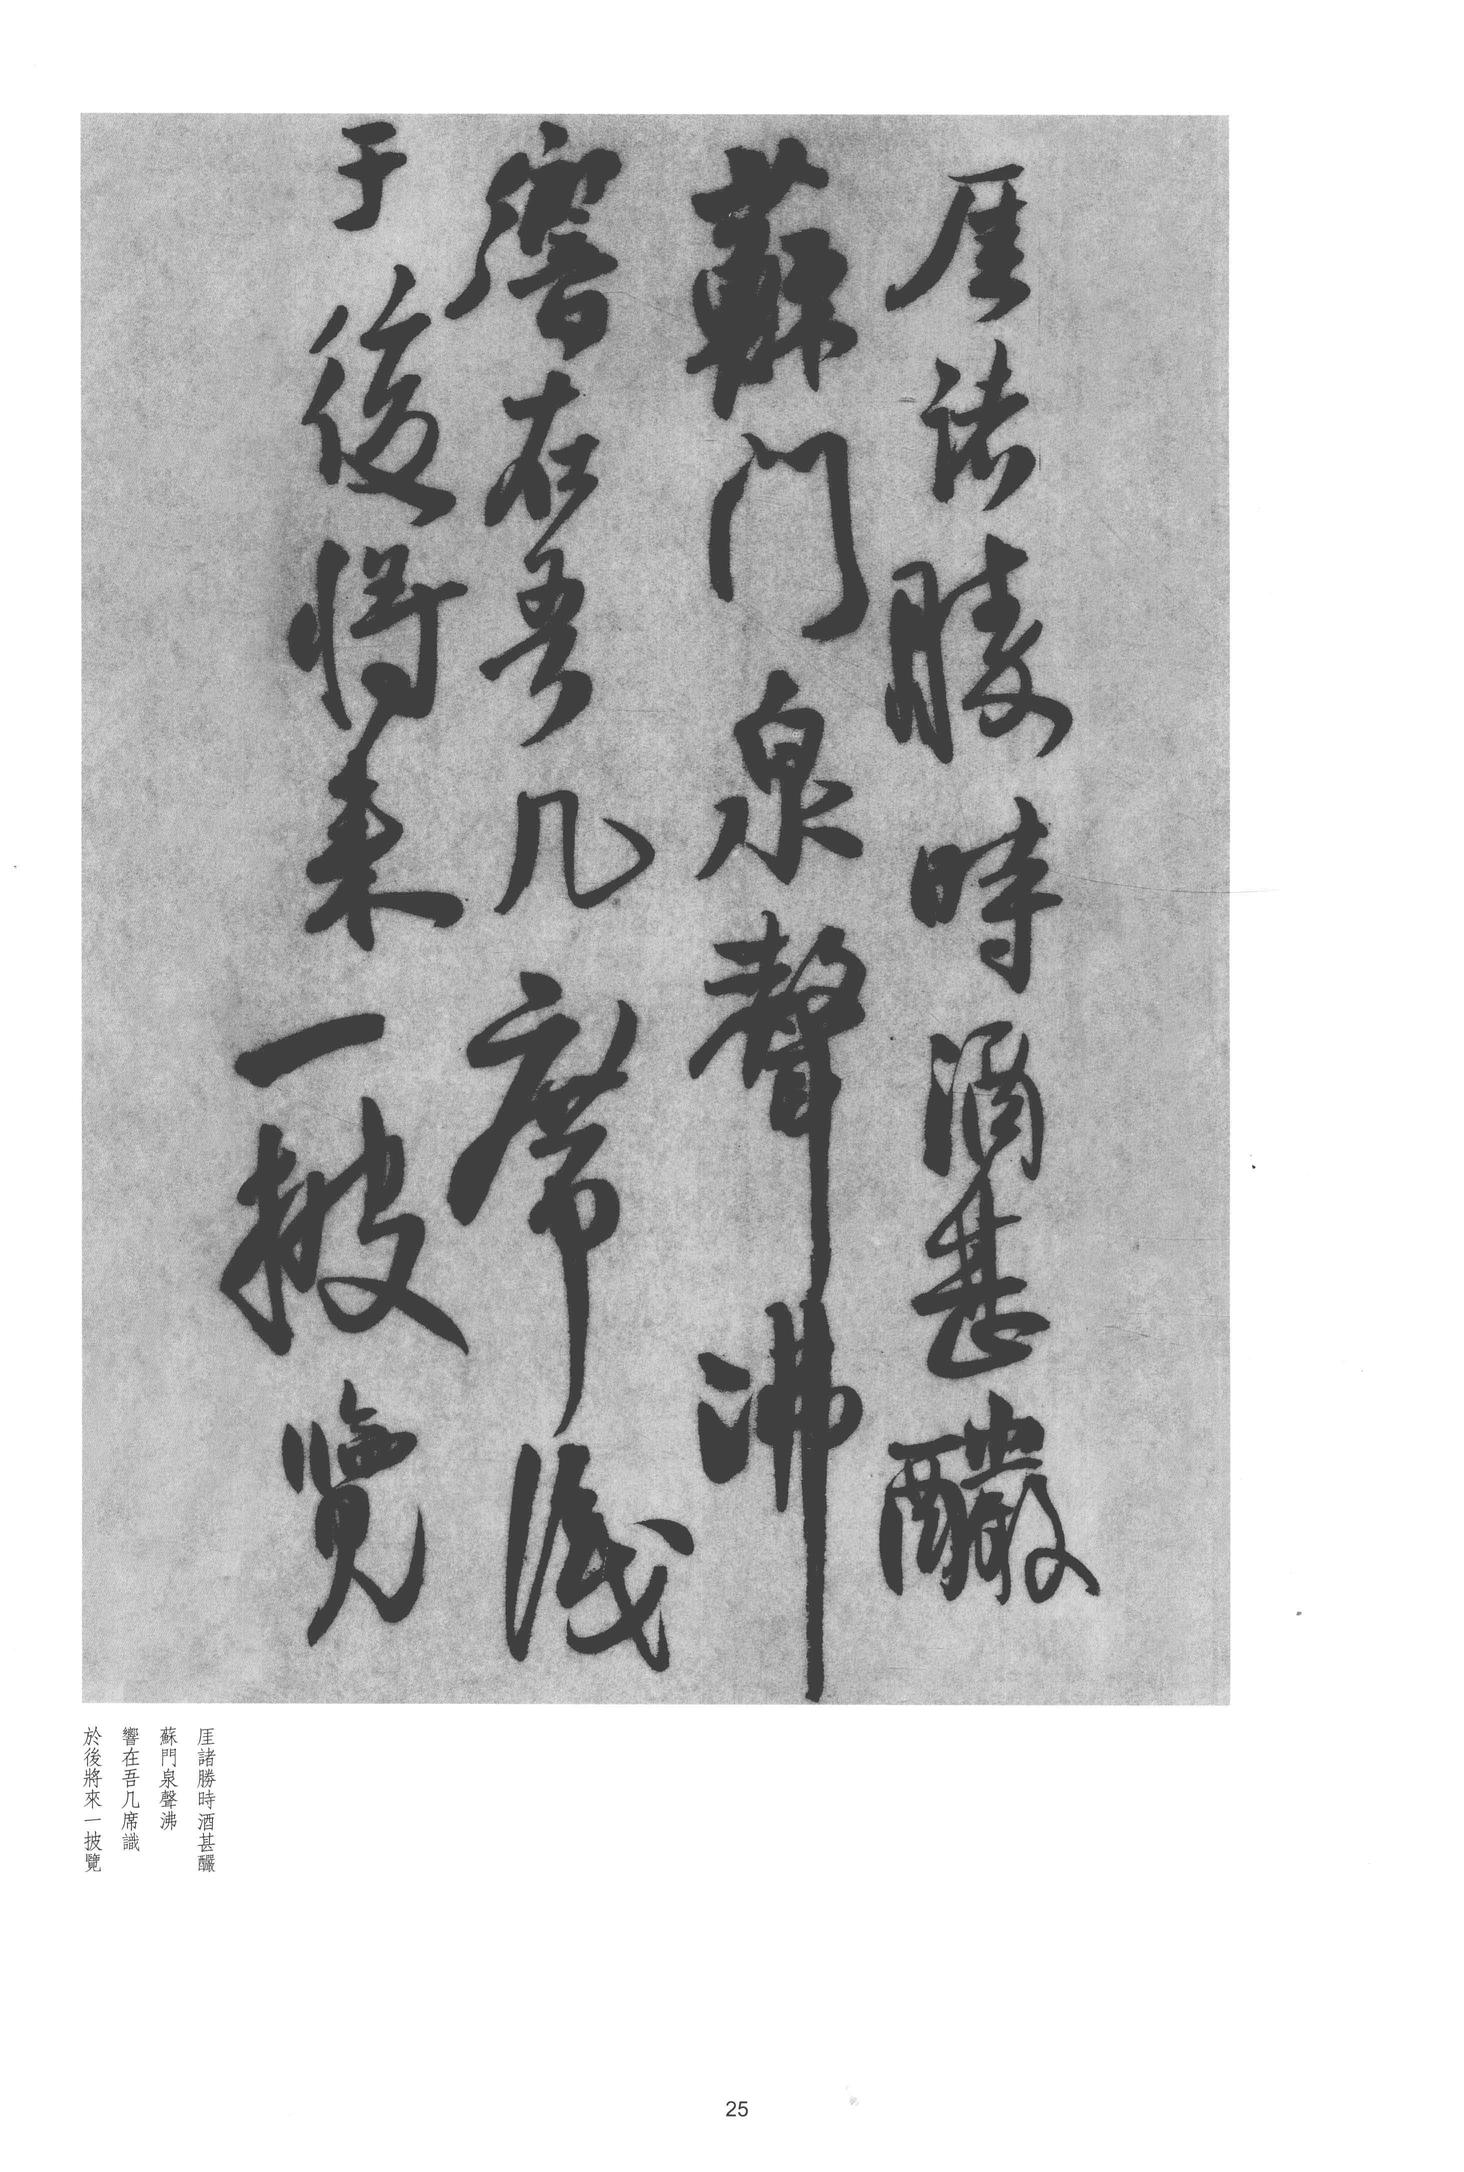 厓诸勝時酒甚釅
蘇门泉聲沸
響在吾几席识
于後将来一披覽
厓諸勝時酒甚釅
蘇門泉聲沸
響在吾几席識
於後將來一披覽
25